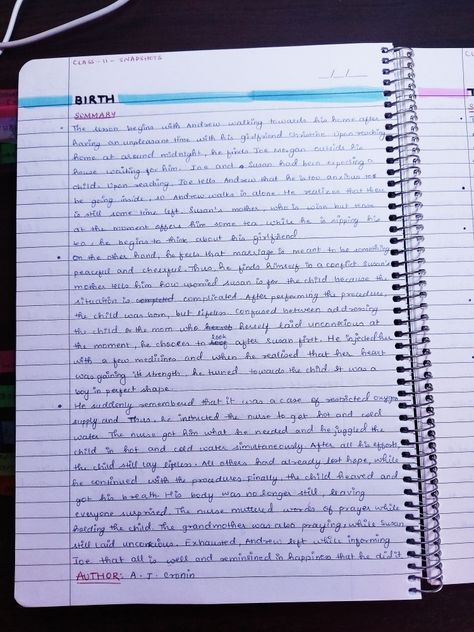 CLASS - 11 - SNAPSHOTS
BIRTH
SUMMARY
The lesson begins with Andrew walking towards his home after
having an unpleasant time with his girlfriend Christine. Upon reaching
home at around midnight, he finds Joe Morgan outside his
house waiting for him. Joe and Susan had been expecting a
child. Upon reading, Joe tells Andrew that he is too anxious to
be going inside, so Andrew walks in alone. He realizes that there
is still some time left. Susan's mother, who is wish but
at the moment offers him some tea. While he is sipping his
tea, he begins to think about his girlfriend
On the other hand, he feels that marriage is meant to be something
peaceful and cheerful. Thus, he finds himself in a conflict Susan's
mother tells him how worried Susan is for the child because the
situation is complicated. After performing the procedure,
the child was born, but lifeless. Confused between addressing
the child or the mom who herself laid unconcious at
the moment, he chooses to look after Susan first. He injected her
with a few medicines and when he realised that her heart
was gaining its strength, he turned towards the child. It was a
boy in perfect shape.
He suddenly remembered that it was a case of restricted oxygen
supply and Thus, he instructed the nurse to get hot and cold
water. The nurse got him what he needed and he juggled the
child in hot and cold water simultaneously. After all his efforts,
the child still lay lifeless. All others had already lost hope, while
he continued with the procedures. Finally, the child heaved and
got his breath. His body was no longer still, leaving
everyone surprised. The nurse muttered words of prayer while
holding the child. The grandmother was also praying, while Susan
still laid unconcious. Exhausted, Andrew left while informing
Joe that all is well and in happiness that he did it
AUTHOR: A. J. Cronin